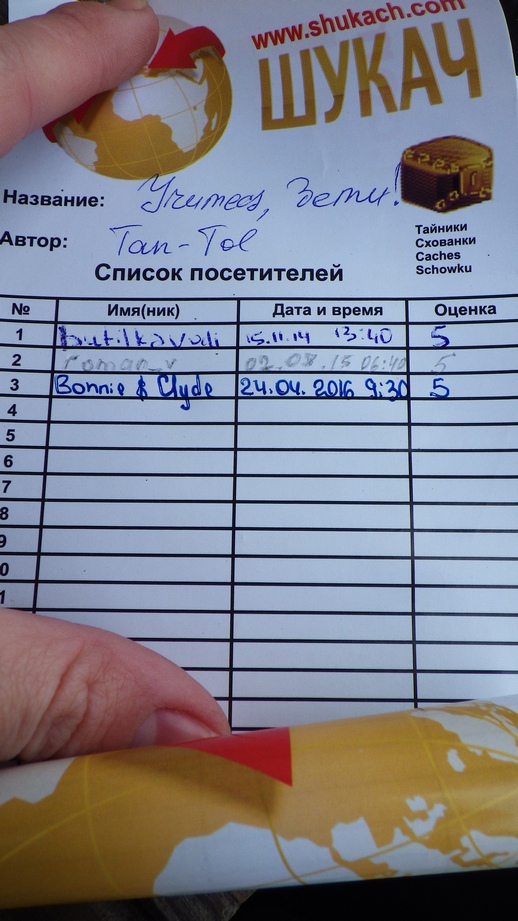 www.shukach.com
ШУКАЧ
Название: Учитесь, дети!
Автор: Tan-Tol
Тайники
Схованки
Caches
Schowku
Список посетителей
№ Имя(ник) Дата и время Оценка
1 butilkavodi 15.11.14 13:40 5
2 roman_v 02.08.15 06:40 5
3 Bonnie & Clyde 24.04.2016 9:30 5
4
5
6
7
8
9
0
1